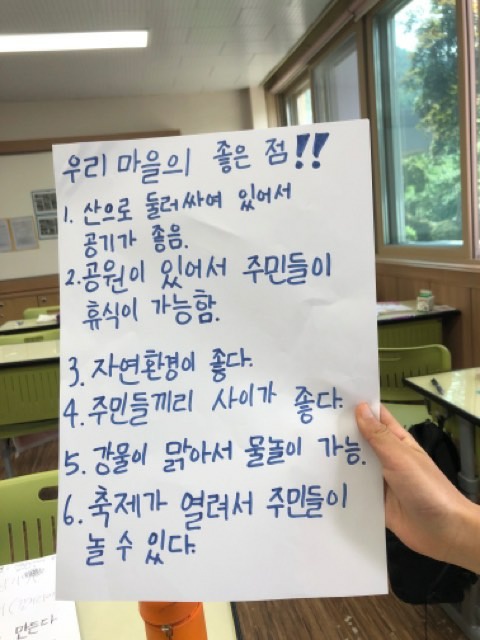 우리 마을의 좋은 점!!
1. 산으로 둘러싸여 있어서
공기가 좋음.
2. 공원이 있어서 주민들이
휴식이 가능함.
3. 자연환경이 좋다.
4. 주민들끼리 사이가 좋다.
5. 강물이 맑아서 물놀이 가능.
6. 축제가 열려서 주민들이
놀 수 있다.
만든다